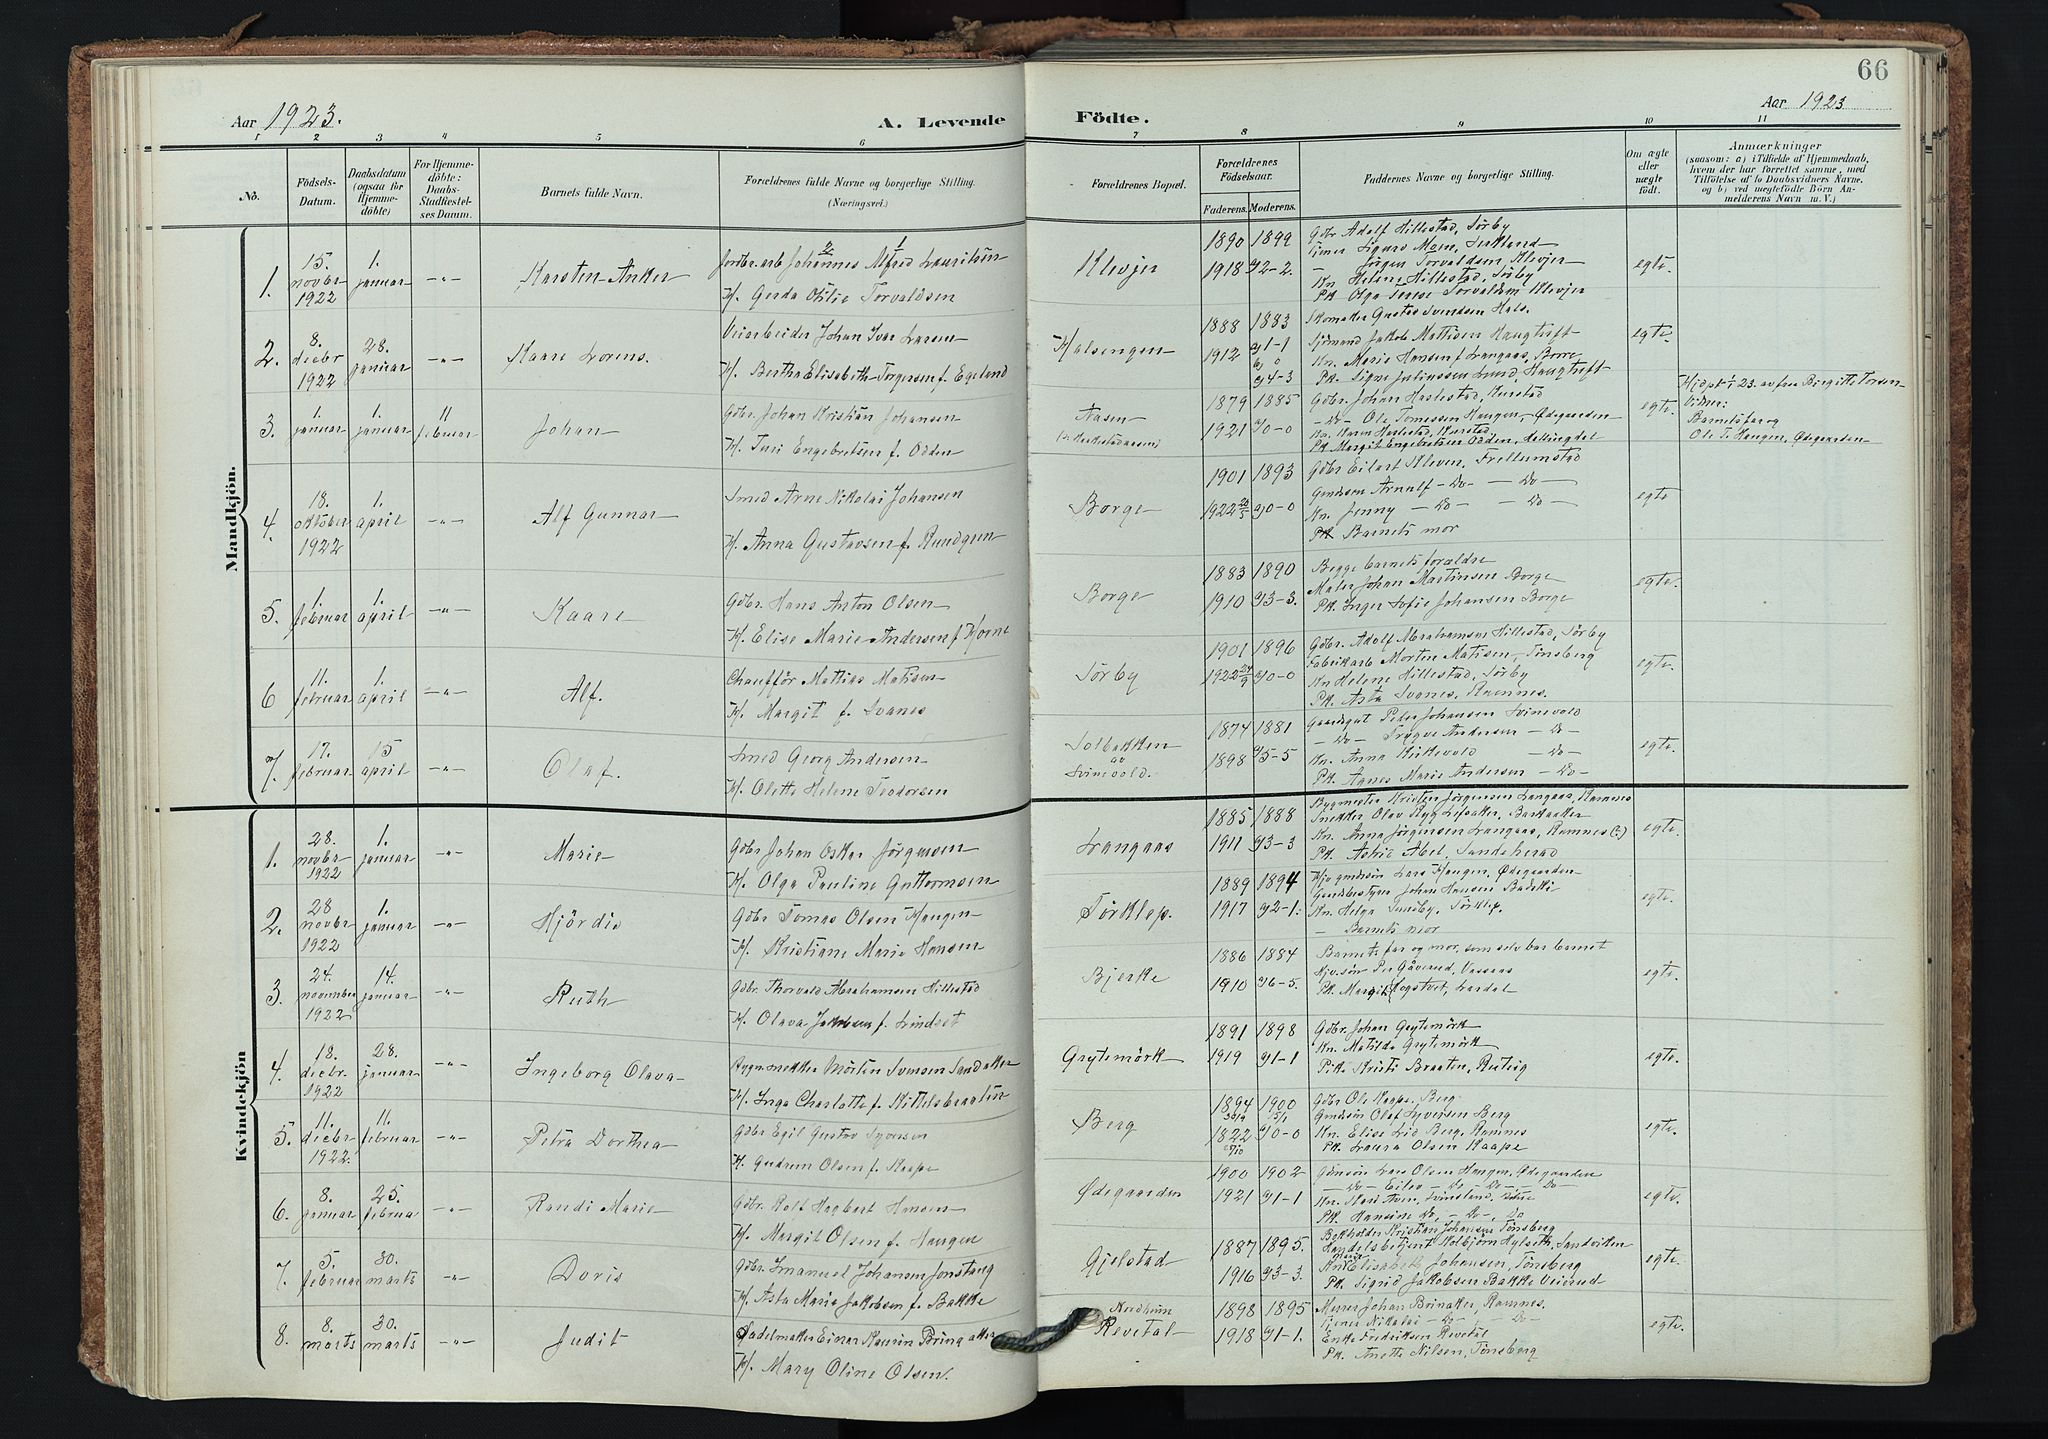 66
Aar 1923.
A. Levende
Födte.
Aar 1923
1 2 3 4 5 6 7 8 9 10 11
No.
Födsels-Datum.
Daabsdatum (ogsaa for Hjemmedöbte)
For Hjemmedöbte: Daabs-Stadfæstelses Datum.
Barnets fulde Navn.
Forældrenes fulde Navne og borgerlige Stilling. (Næringsvei.)
Forældrenes Bopæl.
Forældrenes Födselsaar.
Faderens. Moderens.
Faddernes Navne og borgerlige Stilling.
Om ægte eller uægte födt.
Anmærkninger
(saasom: a) i Tilfælde af Hjemmedaab, hvem der har forrettet samme, med Tilföielse af to Daabsvidners Navne, og b) ved uegtefödte Börn Anmelderens Navn m. V.)
Mandkjön.
1. 15. novbr 1922 1. januar -"- Karsten Anker
Jordbr.arb Johannes Alfred Lauritsen
H. Gerda Otilie Torvaldsen
Klevjer 1890 1899 1918 y2-2.
Gdbr Adolf Hillestad, Sörby
Jörgen Torvaldsen, Klevjer
Kn Helene Hillestad, Sörby
Pk Olga Torvaldsen Klevjer
egte.
2. 8. decbr 1922 28. januar -"- Kaare Lorens.
Veiarbeider Johan Ivar Larsen
H. Bertha Elisabeth Torgersen f. Egeland
Halsengen 1888 1883 1912 y1-1 y4-3
Skomaker Gustav Svendsen Hals.
Sjömand Jakob Mattisen Haugtuft
Kn. Marie Hansen f Langaas, Borre
Pk. Signe Juliussen Lund, Haugtuft
egte.
3. 1. januar 1. januar 11 februar Johan
Gdbr. Johan Kristian Johansen
H. Turi Engebretsen f. Odden
Aasen 1879 1885 1921 y0-0
Gdbr. Johan Haslestad, Hunstad
-Do- Ole Tomessen Haugen, Ödegaarden
Kn. Karen Haslestad, Hunstad
Pk Margit Engebretsen Odden, Hallingdal
egte.
Hjdpt 1/1 23. av fru Birgitte Torsen
Vidner:
Barnets far og
Ole T. Haugen, Ödegaarden
4. 18. oktober 1922 1. april -"- Alf Gunnar
Smed Arne Nikolai Johansen
H. Anna Gustavsen f. Rundgren
Borge 1901 1893 1922 20/5 y0-0
Gdbr Eilart Kleven, Frellumstad
Gmdssön Arnulf -Do- -Do-
Kn. Jenny -Do- -Do-
Pk Barnets mor
egte.
5. 1. februar 1. april -"- Kaare
Gdbr. Hans Anton Olsen
H. Elise Marie Andersen f Horne
Borge 1883 1890 1910 y3-3.
Begge barnets foraeldre
Maler Johan Martinsen Borge
Pk. Inger Sofie Johansen Borge
egte.
6 11. februar 1. april -"- Alf.
Chaufför Mattias Matisen
H. Margit f. Svanes
Sörby 1901 1896 1922 24/9 y0-0
Gdbr. Adolf Abrahamsen Hillestad, Sörby
Fabrikarb Morten Matisen, Tönsberg
Kn Helene Hillestad, Sörby
Pk. Asta Svanes, Ramnes.
egte.
7. 17. februar 15 april -"- Olaf.
Smed Georg Andersen
H. Olette Helene Teodorsen
Solbakken av Svinevold. 1874 1881 1898 y5-5
Gaardsgut Peter Johansen Svinevold
-Do- Trygve Andersen -Do-
Kn. Anna Kirkevold -Do-
Pk. Agnes Marie Andersen -Do-
egte.
Kvindekjön
1. 28. novbr 1922 1. januar -"- Marie
Gdbr Johan Oskar Jörgensen
H. Olga Pauline Guttormsen
Langaas 1885 1888 1911 y3-3
Bygmester Kristen Jörgensen Langaas, Ramnes
Snekker Olav Ryg Lefsaker, Barkaaker
Kn. Anna Jörgensen Langaas, Ramnes
Pk. Astrid Abel, Sandeherad
egte.
2. 28 novbr 1922 1. januar -"- Hjördis
Gdbr Tomas Olsen Haugen
H. Kristiane Marie Hansen
Törklep. 1889 1894 1917 y2-1.
Lars Haugen, Ödegaarden
Gmdbestyrer Johan Hansen
Kn. Helga Sundby, Törklep.
- Barnets mor
egte.
3. 24. november 1922 14. januar -"- Ruth
Gdbr. Thorvald Abrahamsen Hillestad
H. Olava Jakobsen f. Lindset
Bjerke 1886 1884 1910 y6-5.
Barnets far og mor, som selv bar barnet
Pk. Margit Hogstvet, Lardal
egte.
4. 18. decbr. 1922 28. januar -"- Ingeborg Olava
Bygnsnekker Morten Svensen Sandaker
H. Inga Charlotte f. Kittelsbraaten
Grytemörk 1891 1898 1919 y1-1
Gdbr. Johan Grytemörk
Kn. Matilda Grytemörk
Pike Kristi Braaten,
egte.
5. 11. decbr 1922. 11. februar -"- Petra Dorthea
Gdbr Egil Gustav Syversen
H. Gudrun Olsen f. Kaape
Berg 1894 1900 1822 y0-0
Gdbr Ole Kaape, Berg
Gmdssön Olaf Syversen Berg
Kn. Elise Lid Berg, Ramnes
Pk. Laura Olsen Kaape
egte.
6. 8. januar 25. februa -"- Randi Marie
Gdbr. Rolf Hagbart Hansen
H. Margit Olsen f. Haugen
Ödegaarden 1900 1902 1921 y1-1
Gdmssön Lars Olsen Haugen, Ödegaarden
-Do- Eilev -Do- -Do-
Pk. Hansine Do, -Do-, Do
egte.
7. 5. februar 30. marts -"- Doris
Gdbr. Emanuel Johansen Jonstang
H. Asta Marie Jakobsen f. Bakke
Gjelstad 1887 1895. 1916 y3-3.
Bokholder Kristian Johansen Tönsberg
Handelsbetjent Kolbjörn Hylseth, Sandviken
Kn Elisabeth Johansen, Tönsberg
Pk. Sigrid Jakobsen Bakke Veierud
egte.
8. 8. marts 30. marts -"- Judit
Sadelmaker Einar Kaurin Bringaker
H. Mary Oline Olsen.
Nordheim Revetal 1898 1895 1918 y1-1.
Murer Johan Brinaker, Ramnes.
Nikolai -Do- -Do-
Enke Fredriksen Revetal
Pk. Anette Nilsen, Tönsberg
egte.